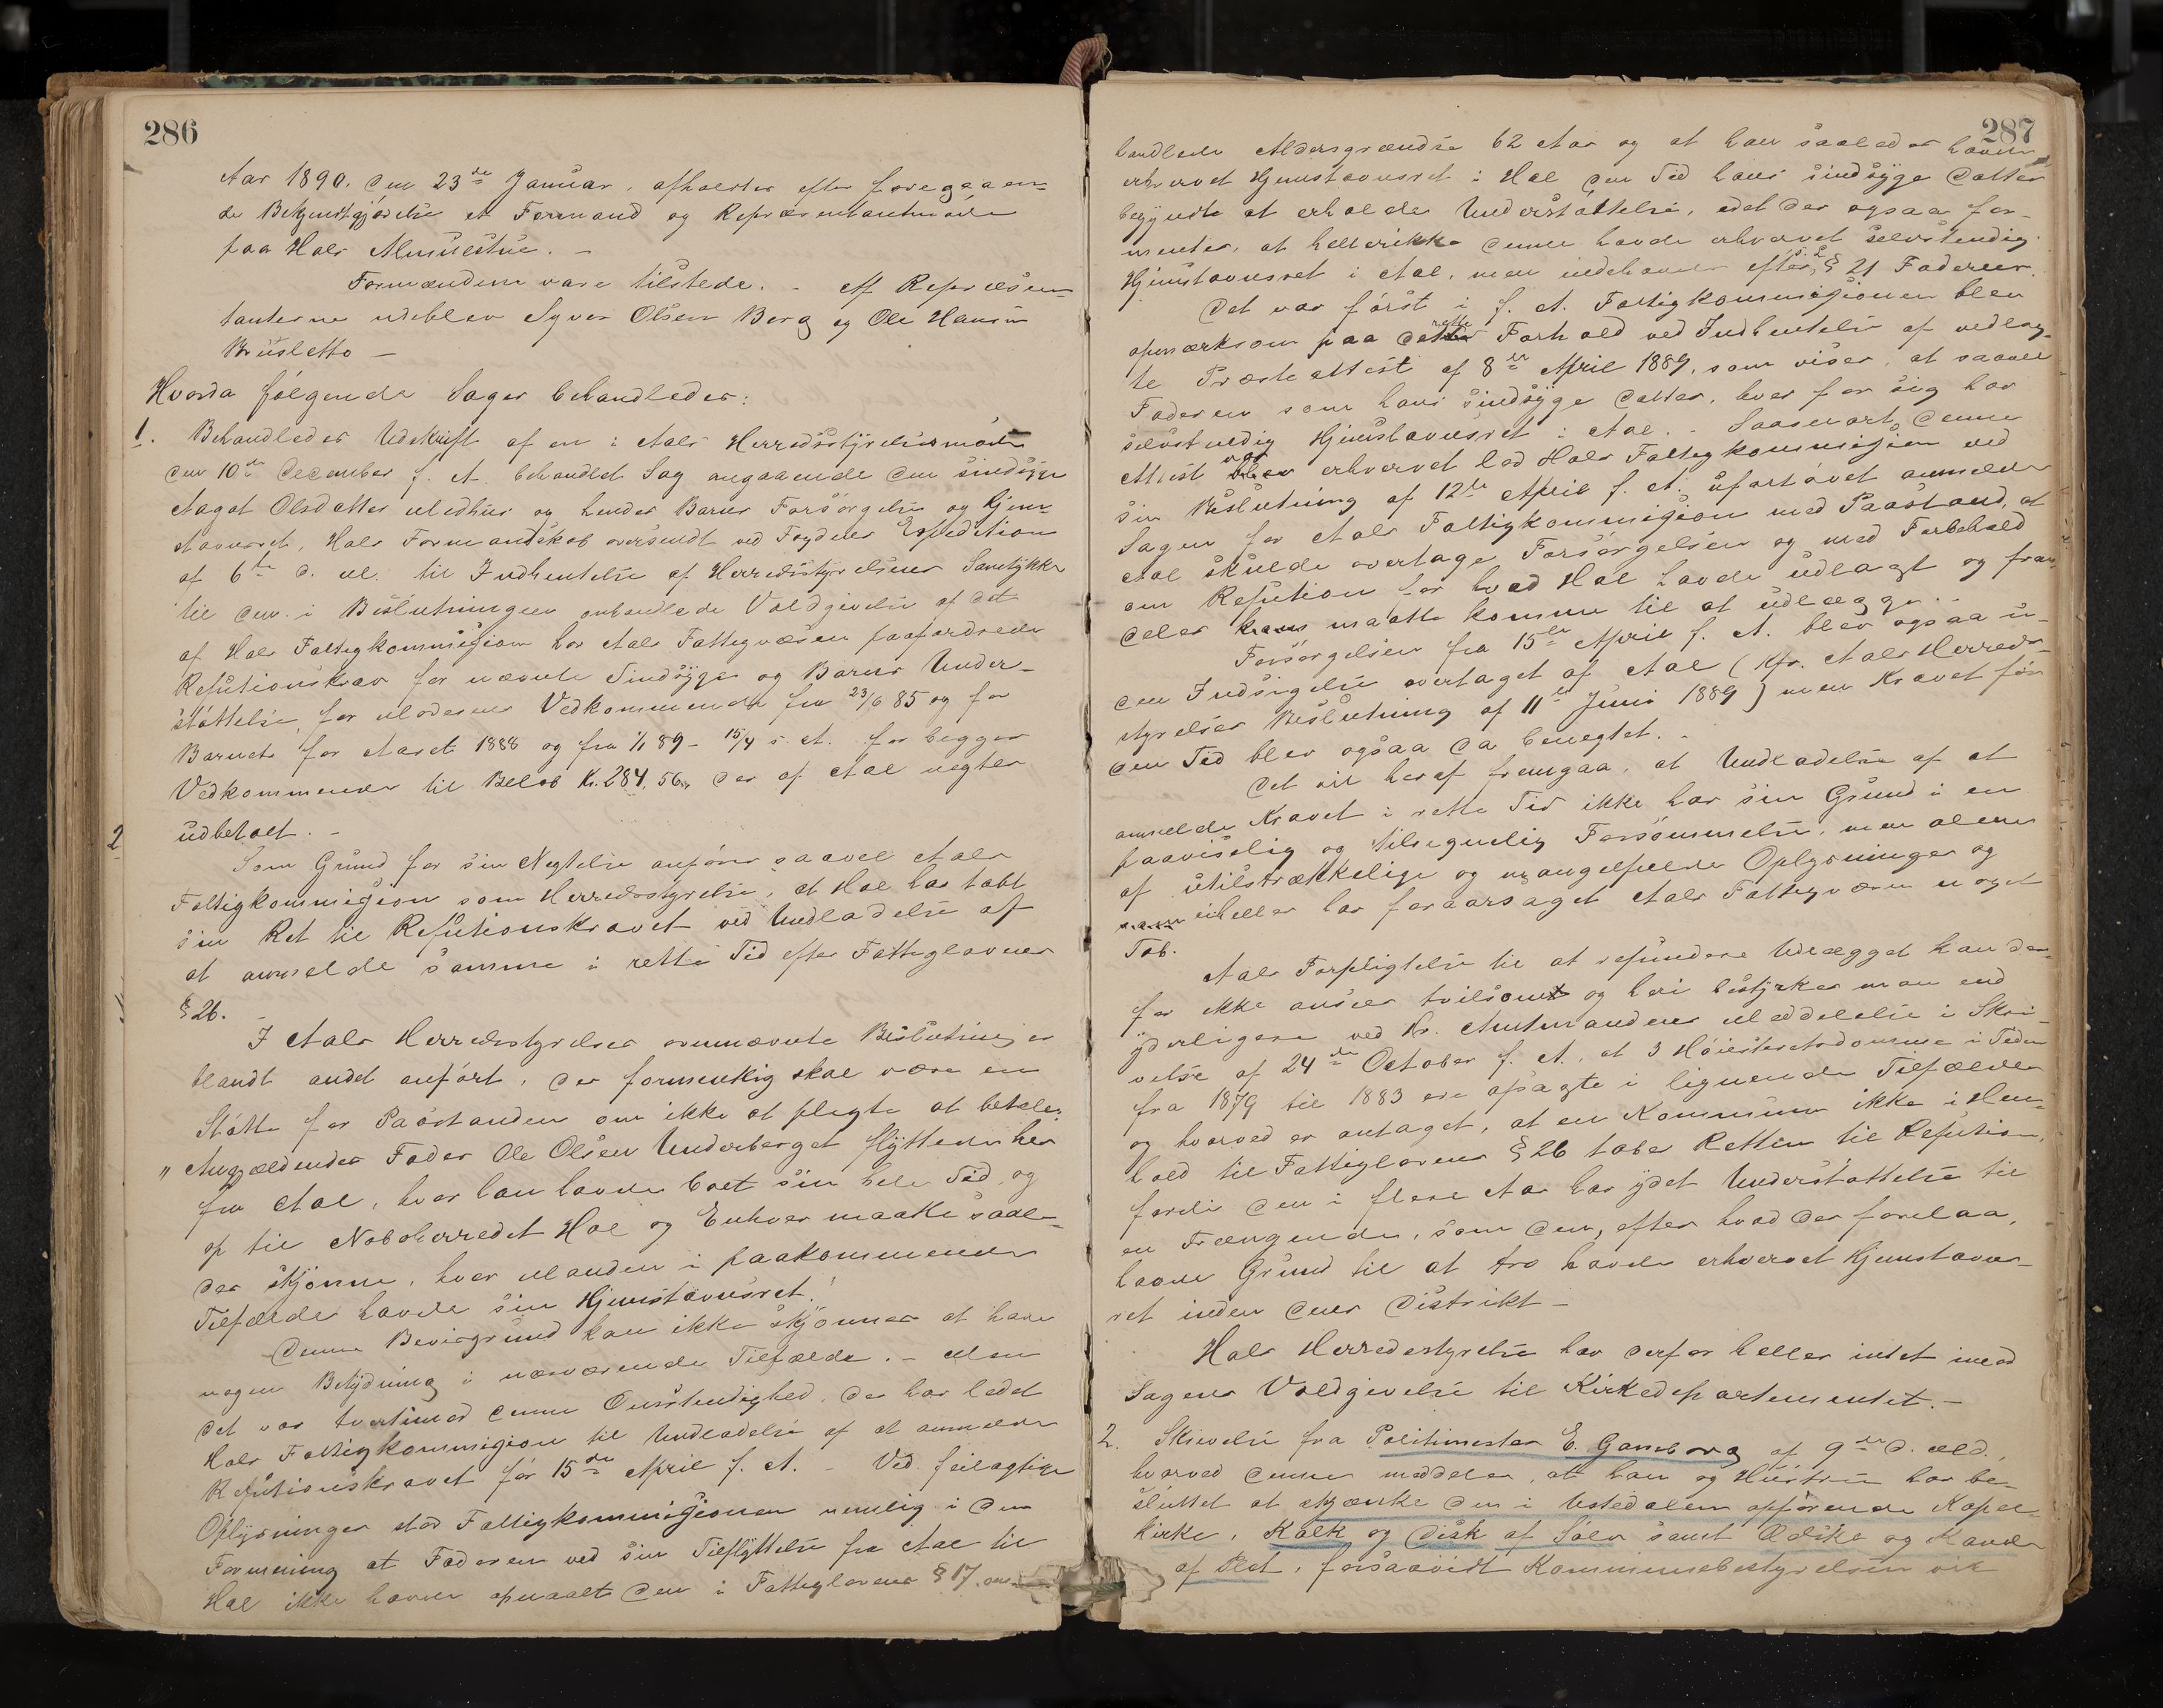 286
Aar 1890, den 23de Januar, afholdtes efter foregaaen-
de Bekjendtgjørelse et Formand og Repræsentantmøde
paa Hols Almuestue. –
Formændene vare tilstede. – Af Repræsen-
tanterne udeblev Syver Olsen Berg og Ole Hansen
Brusletto –
Hvorda følgende Sager behandledes:
1. Behandledes Udskrift af en i Aals Herredsstyrelsesmøde
den 10de December f. A. behandlet Sag angaaende den sindssyge
Aagot Olsdatter Medhus og hendes Barns Forsørgelse og Hjem
stavnsret, Hols Formandskab oversendt ved Fogdens Expedition
af 6te d. M. til Indhentelse af Herredsstyrelsens Samtykke
til den i Beslutningen omhandlede Voldgivelse af det
af Hols Fattigkommission hos Aals Fattigvæsen paafordrede
Refutionskrav for nævnte Sindssyge og Barns Under-
støttelse, for Moderens Vedkommende fra 23/6 85 og for
Barnets for Aaret 1888 og fra 1/1 89 – 15/4 s. A. for begges
Vedkommende til Beløb Kr. 284,56, der af Aal negtes
udbetalt. –
2
Som Grund for sin Negtelse anfører saavel Aals
Fattigkommission som Herredsstyrelse, at Hol har tabt
sin Ret til Refutionskravet ved Undladelse af
at anmelde samme i rette Tid efter Fattiglovens
§ 26. –
I Aals Herredsstyrelses ovennævnte Beslutning er
blandt andet anført, der formentlig skal være en
Støtte for Paastanden om ikke at pligte at betale:
„Angjældendes Fader Ole Olsen Underberget flyttede her
fra Aal, hvor han havde boet sin hele Tid, og
op til Naboherredet Hol og Enhver maatte saale-
des skjønne, hvor Manden i paakommende
Tilfælde havde sin Hjemstavnsret."
Denne Bevisgrund kan ikke skjønnes at have
nogen Betydning i nærværende Tilfælde. – Men
det var tvertimod denne Omstendighed, der har ledet
Hols Fattigkommission til Undladelse af at anmelde
Refutionskravet før 15de April f. A. – Ved feilagtige
Oplysninger stod Fattigkommissionen nemlig i den
Formening at Faderen ved sin Tilflyttelse fra Aal til
Hol ikke havde opnaaet den i Fattiglovens § 17 om-
287
handlede Aldersgrændse 62 Aar og at han saaledes havde
erhvervet Hjemstavnsret i Hol den Tid hans sindssyge Datter
begyndte at erholde Understøttelse, idet der ogsaa for-
mentes, at heller ikke denne havde erhvervet selvstendig
Hjemstavnsret i Aal, men indehavde efter § 21 Faderens.
Det var først i f. A. Fattigkommissionen blev
opmærksom paa dette rette Forhold ved Indhentelse af vedlag-
te Præsteattest af 8de April 1889, som viser, at saavel
Faderen som hans sindssyge Datter, hver for sig har
selvstendig Hjemstavnsret i Aal. – Saasnart denne
Attest var erhvervet lod Hols Fattigkommission ved
sin Beslutning af 12te April f. A. ufortøvet anmelde
Sagen for Aals Fattigkommission med Paastand, at
Aal skulde overtage Forsørgelsen og med Forbehold
om Refution for hvad Hol havde udlagt og frem-
deles maatte komme til at udlægge. –
Forsørgelsen fra 15de April f. A. blev ogsaa u-
den Indsigelse overtaget af Aal (Kfr. Aals Herreds-
styrelses Beslutning af 11te Juni 1889) men Kravet før
den Tid blev ogsaa da benegtet. –
Det vil heraf fremgaa, at Undladelse af at
anmelde Kravet i rette Tid ikke har sin Grund i en
paaviselig og tilregnelig Forsømmelse, men alene
af utilstrækkelige og mangelfulde Oplysninger og
eiheller har foraarsaget Aals Fattigvæsen noget
Tab.
Aals Forpligtelse til at refundere Udlægget kan der-
for ikke ansees tvilsomt og heri bestyrkes man end
yderligere ved Hr. Amtmandens Meddelelse i Skri-
velse af 24de October f. A., at 3 Høiesteretsdomme i Tiden
fra 1879 til 1883 ere afsagte i lignende Tilfælde
og hvorved er antaget, at en Kommune ikke i Hen-
hold til Fattiglovens § 26 taber Retten til Refution,
fordi den i flere Aar har ydet Understøttelse til
en Trængende, som den, efter hvad der forelaa,
havde Grund til at tro havde erhvervet Hjemstavns-
ret inden dens Distrikt –
Hols Herredsstyrelse har derfor heller intet imod
Sagens Voldgivelse til Kirkedepartementet. –
2. Skrivelse fra Politimester E. Gamborg af 9de d. Md.,
hvorved denne meddeler, at han og Hustru har be-
sluttet at skjænke den i Ustedalen opførende Kapel-
kirke, Kalk og Disk af Sølv samt Oblateske og Kande
af Plet, forsaavidt Kommunebestyrelsen vil